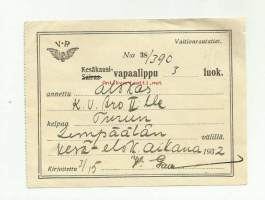 V.R.
Valtionrautatiet.
N:o 38/390
Kesäkausi-
Sairas- vapaalippu 3 luok.
annettu
K. V. Aro II lle
kelpaa Turun
Lempäälän välillä.
kesä-elok. aikana 1932
Kirjoitettu 7/15